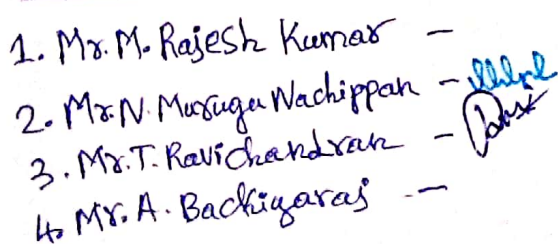 1. Mr. M. Rajesh Kumar -
2. Mr. N. Muruga Nachippan -
3. Mr. T. Ravichandran -
4. Mr. A. Backiyaraj -